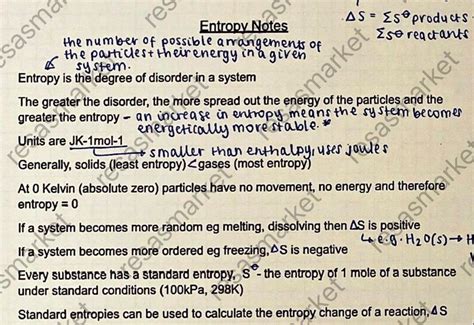 Entropy Notes
ΔS = ΣS⊖ products -
ΣS⊖ reactants
the number of possible arrangements of
the particles + their energy in a given
system.
Entropy is the degree of disorder in a system
The greater the disorder, the more spread out the energy of the particles and the
greater the entropy - an increase in entropy means the system becomes
energetically more stable. *
Units are JK-1mol-1
→ smaller than enthalpy, uses joules
Generally, solids (least entropy) < gases (most entropy)
At 0 Kelvin (absolute zero) particles have no movement, no energy and therefore
entropy = 0
If a system becomes more random eg melting, dissolving then ΔS is positive
↳ e.g. H2O(s) → H
If a system becomes more ordered eg freezing, ΔS is negative
Every substance has a standard entropy, S⊖ - the entropy of 1 mole of a substance
under standard conditions (100kPa, 298K)
Standard entropies can be used to calculate the entropy change of a reaction, ΔS
resasmarket